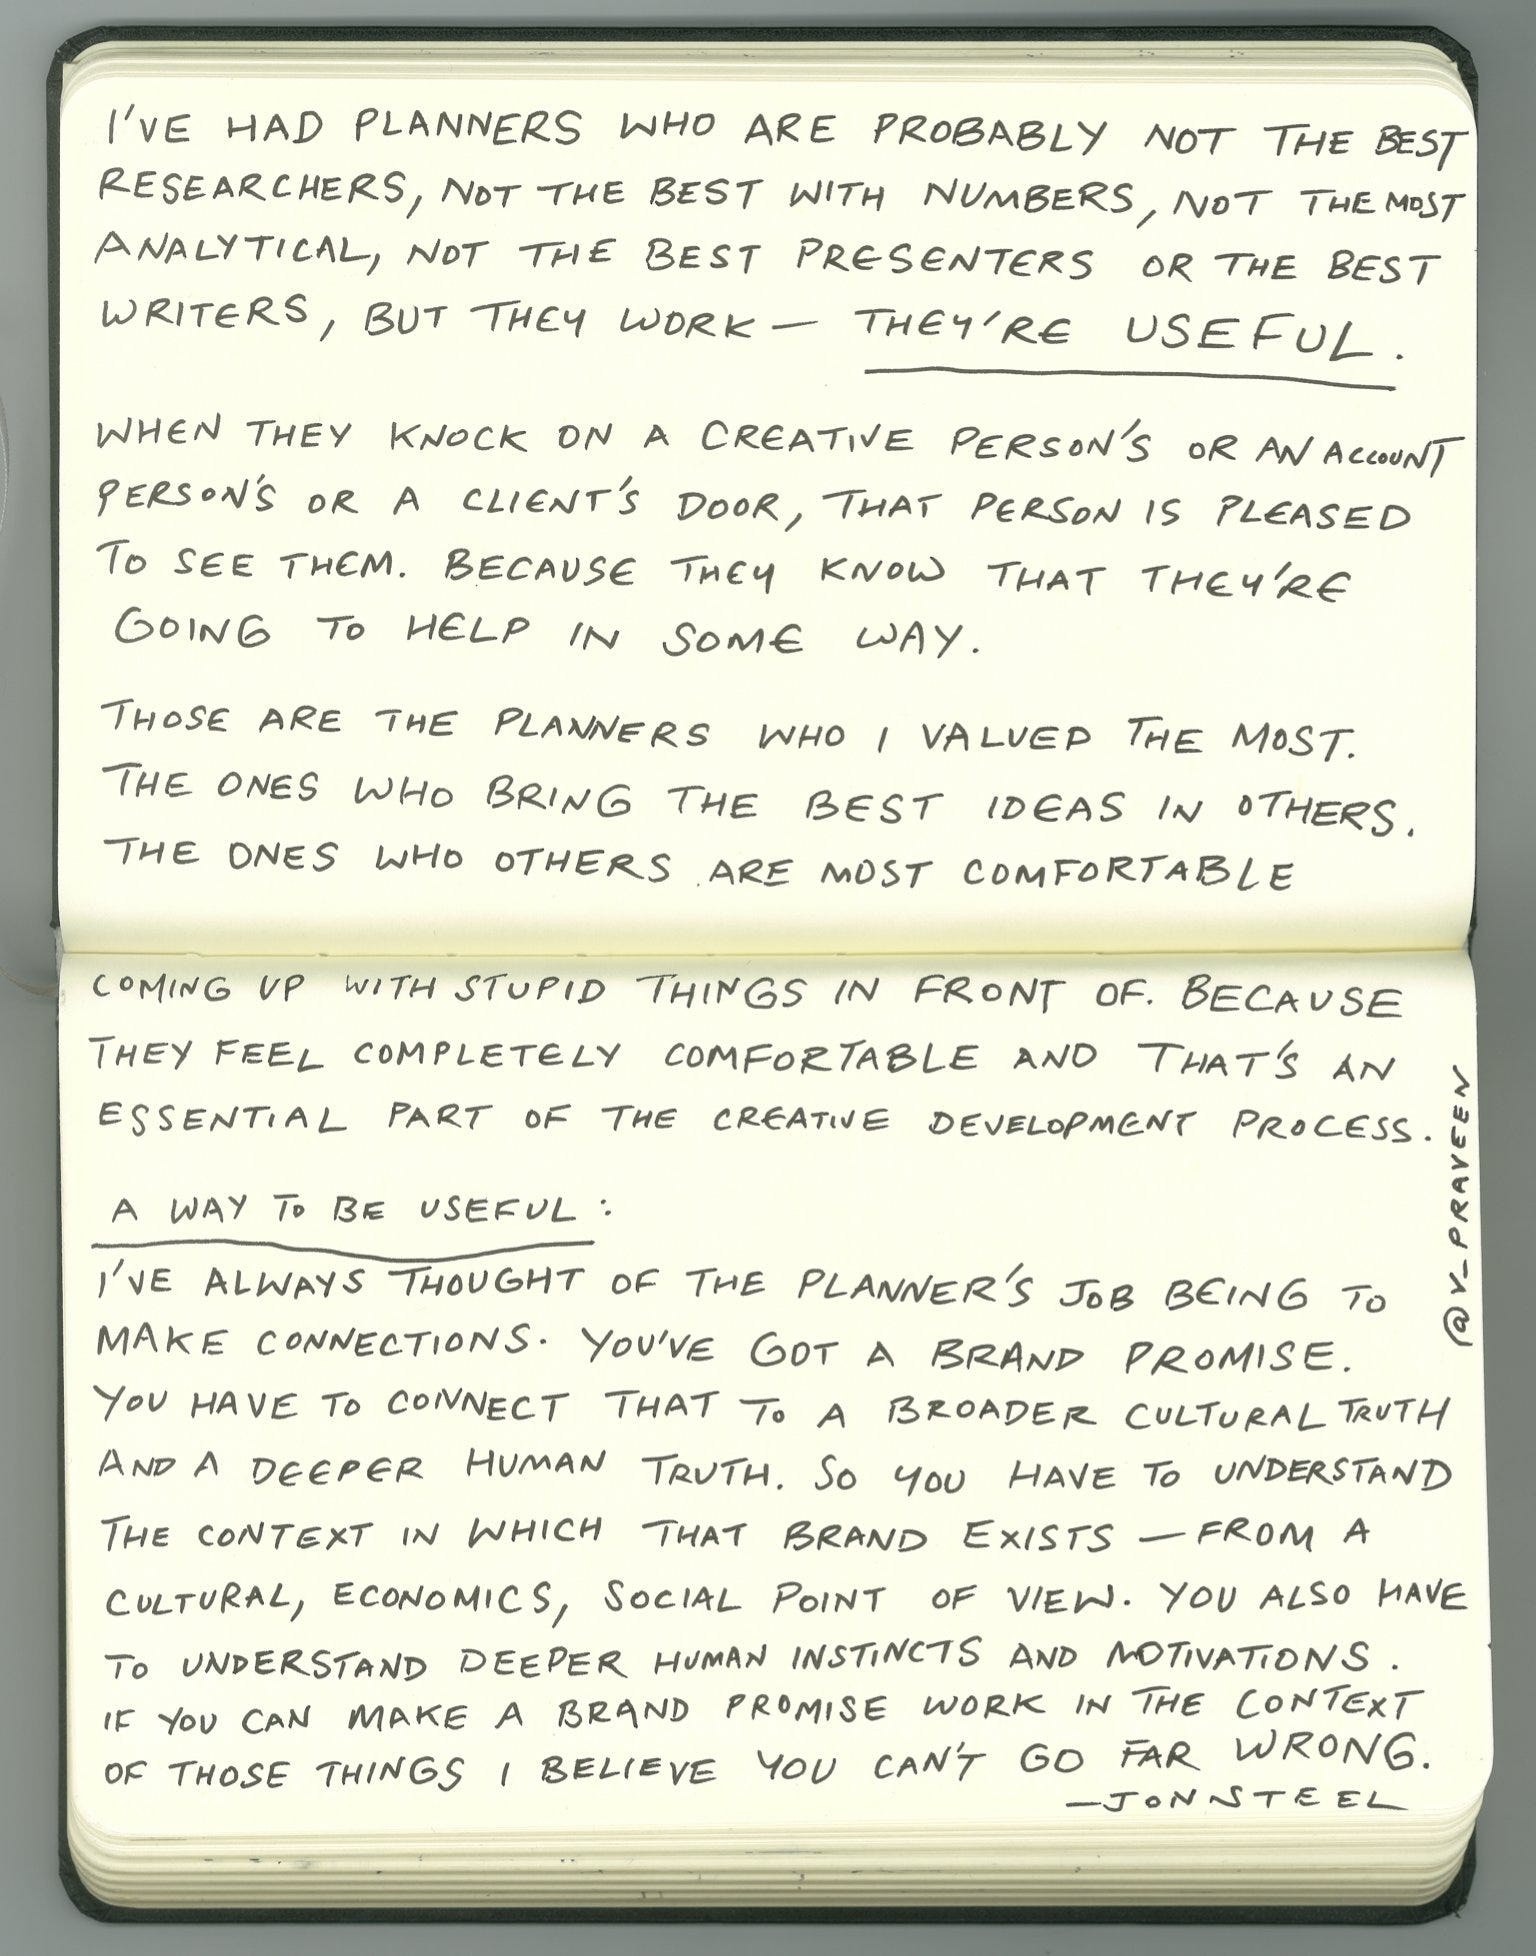 I'VE HAD PLANNERS WHO ARE PROBABLY NOT THE BEST
RESEARCHERS, NOT THE BEST WITH NUMBERS, NOT THE MOST
ANALYTICAL, NOT THE BEST PRESENTERS OR THE BEST
WRITERS, BUT THEY WORK — THEY'RE USEFUL.
WHEN THEY KNOCK ON A CREATIVE PERSON'S OR AN ACCOUNT
PERSON'S OR A CLIENT'S DOOR, THAT PERSON IS PLEASED
TO SEE THEM. BECAUSE THEY KNOW THAT THEY'RE
GOING TO HELP IN SOME WAY.
THOSE ARE THE PLANNERS WHO I VALUED THE MOST.
THE ONES WHO BRING THE BEST IDEAS IN OTHERS.
THE ONES WHO OTHERS ARE MOST COMFORTABLE
COMING UP WITH STUPID THINGS IN FRONT OF. BECAUSE
THEY FEEL COMPLETELY COMFORTABLE AND THAT'S AN
ESSENTIAL PART OF THE CREATIVE DEVELOPMENT PROCESS.
A WAY TO BE USEFUL:
I'VE ALWAYS THOUGHT OF THE PLANNER'S JOB BEING TO
MAKE CONNECTIONS. YOU'VE GOT A BRAND PROMISE.
YOU HAVE TO CONNECT THAT TO A BROADER CULTURAL TRUTH
AND A DEEPER HUMAN TRUTH. SO YOU HAVE TO UNDERSTAND
THE CONTEXT IN WHICH THAT BRAND EXISTS — FROM A
CULTURAL, ECONOMICS, SOCIAL POINT OF VIEW. YOU ALSO HAVE
TO UNDERSTAND DEEPER HUMAN INSTINCTS AND MOTIVATIONS.
IF YOU CAN MAKE A BRAND PROMISE WORK IN THE CONTEXT
OF THOSE THINGS I BELIEVE YOU CAN'T GO FAR WRONG.
— JON STEEL
@V_PRAVEEN